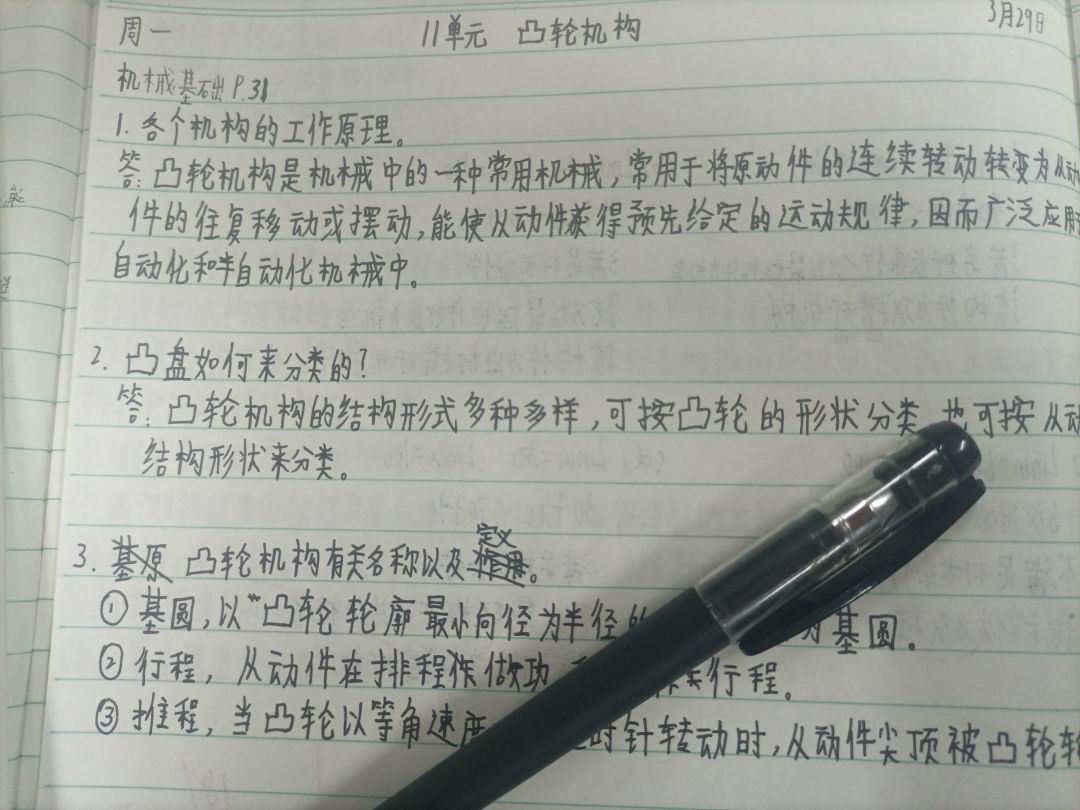 周一 11单元 凸轮机构 3月29日
机械基础 P.31
1. 各个机构的工作原理。
答: 凸轮机构是机械中的一种常用机械,常用于将原动件的连续转动转变为从动
件的往复移动或摆动,能使从动件获得预先给定的运动规律,因而广泛应用
自动化和半自动化机械中。
2. 凸盘如何来分类的?
答: 凸轮机构的结构形式多种多样,可按凸轮的形状分类 也可按从动
结构形状来分类。
定义
3. 凸轮机构有关名称以及。
① 基圆,以“凸轮轮廓最小向径为半径的 为基圆。
② 行程, 从动件在排程 做功 行程。
③ 推程, 当凸轮以等角速度 时针转动时,从动件尖顶被凸轮轮